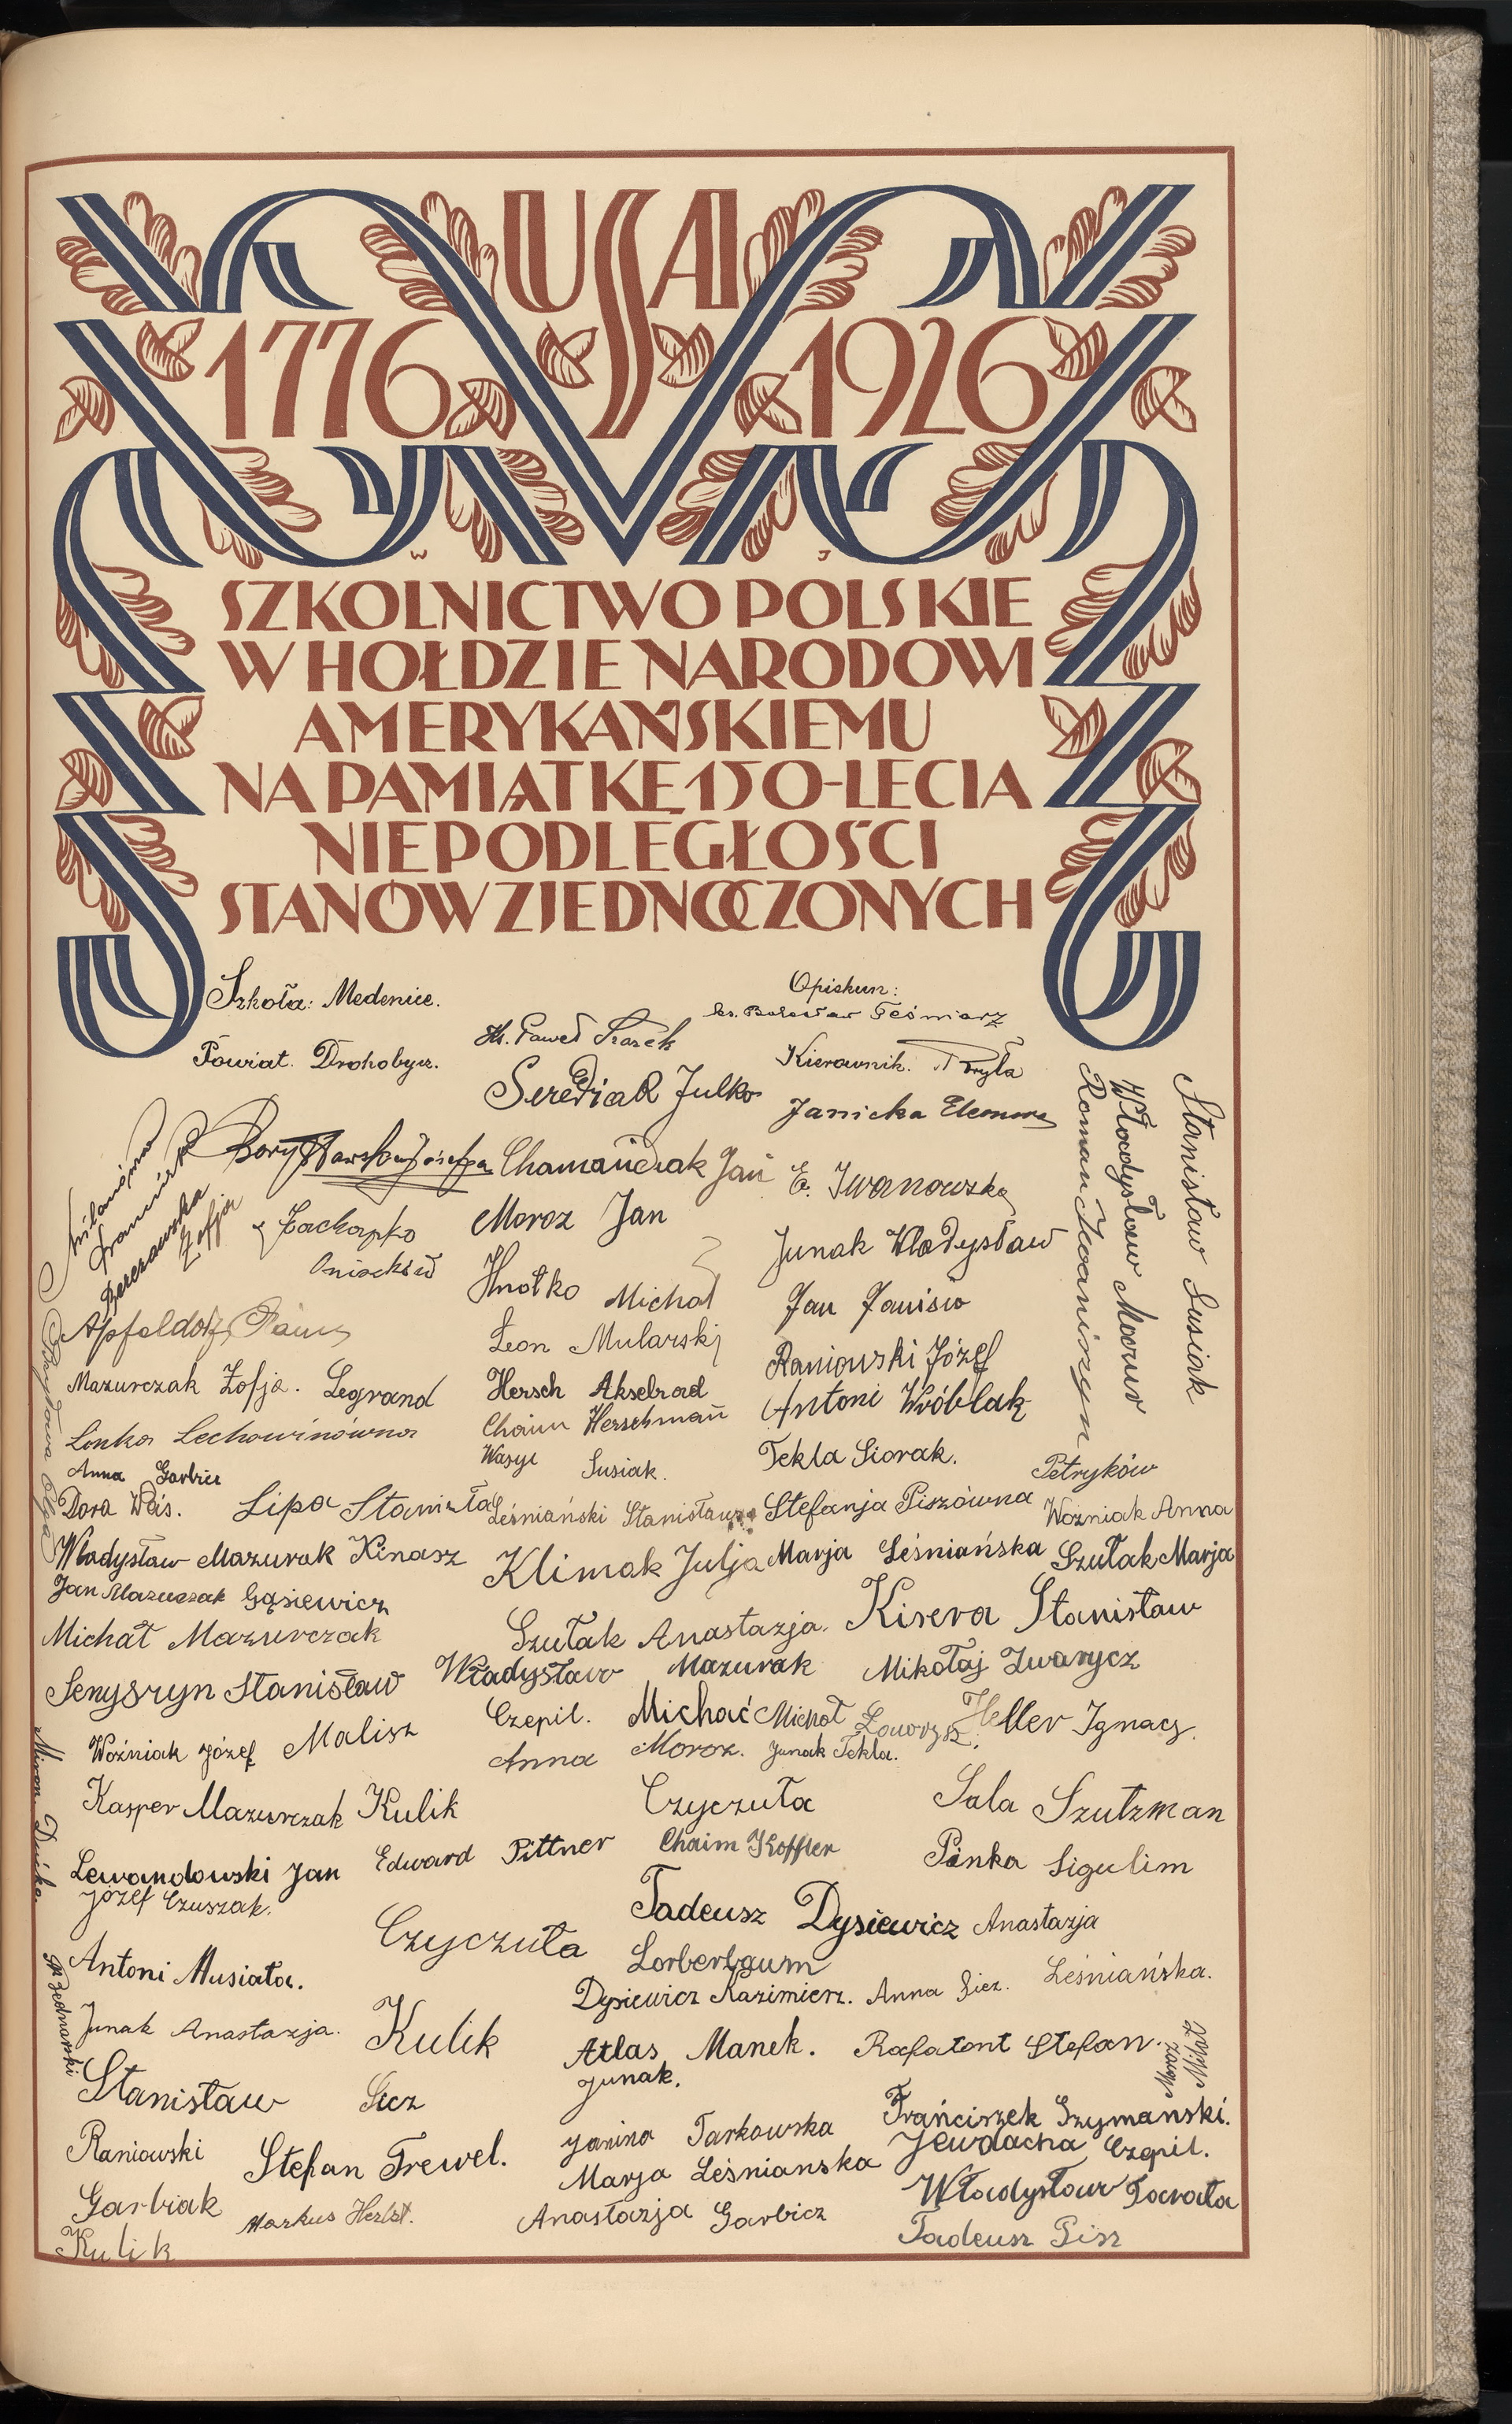 USA
1776 1926
W J
SZKOLNICTWO POLSKIE
W HOŁDZIE NARODOWI
AMERYKAŃSKIEMU
NA PAMIĄTKĘ 150-LECIA
NIEPODLEGŁOŚCI
STANÓW ZJEDNOCZONYCH
Szkoła: Medenice.
Powiat. Drohobycz.
Opiekun:
ks. Bolesław Teśniarz
Ks. Paweł
Kierownik. Pryla
Serediak Julko
Janicka Eleonora
Stanisław Susiak
Władysław Moroz
Roman
Franciszka
Berezowska
Zofja
Chamańczak Jan
E. Iwanowska
Zachapko
Moroz Jan
Junak Władysław
Hnatko Michał
Jan Janisiw
Apfeldorf
Leon Mularski
Raniowski Józef
Mazurczak Zofja. Legrand
Hersch Akselrad
Antoni Wróblak
Lonka Lechowinówna
Chaim Herschman
Anna Garbicz
Wasyl Susiak.
Tekla Siorak.
Petryków
Dora Waś.
Lipa Stanisława
Leśniański Stanisław
Stefanja Piszówna
Woźniak Anna
Władysław Mazurak Kinasz
Klimak Julja
Marja Leśniańska
Szułak Marja
Jan Mazurczak Gąsiewicz
Michał Mazurczak
Szułak Anastazja.
Kisera Stanisław
Senyszyn Stanisław
Władysław Mazurak
Mikołaj Iwarycz
Czepil. Michać
Michał
Heller Ignacy.
Woźniak Józef Malisz
Anna Moroz.
Junak Tekla.
Kasper Mazurczak Kulik
Czyczuła
Sala Szutzman
Miron Dućko.
Lewandowski Jan
Edward Pittner
Chaim Koffler
Pinka Sigulim
Józef Czuszak.
Tadeusz Dysiewicz Anastazja
Czyczuła
Lorberbaum
Leśniańska.
Antoni Musiała.
Dysiewicz Kazimierz. Anna Sicz.
Bednarski
Junak Anastazja.
Kulik
Atlas Manek.
Rafałont Stefan.
Junak.
Stanisław Sicz
Franciszek Szymanski.
Raniowski
Stefan Trewel.
Janina Tarkowska
Jewdacha Czepil.
Marja Leśnianska
Garbiak
Markus Herbst.
Anastazja Garbicz
Władysław Tarała
Kulik
Tadeusz Pisz